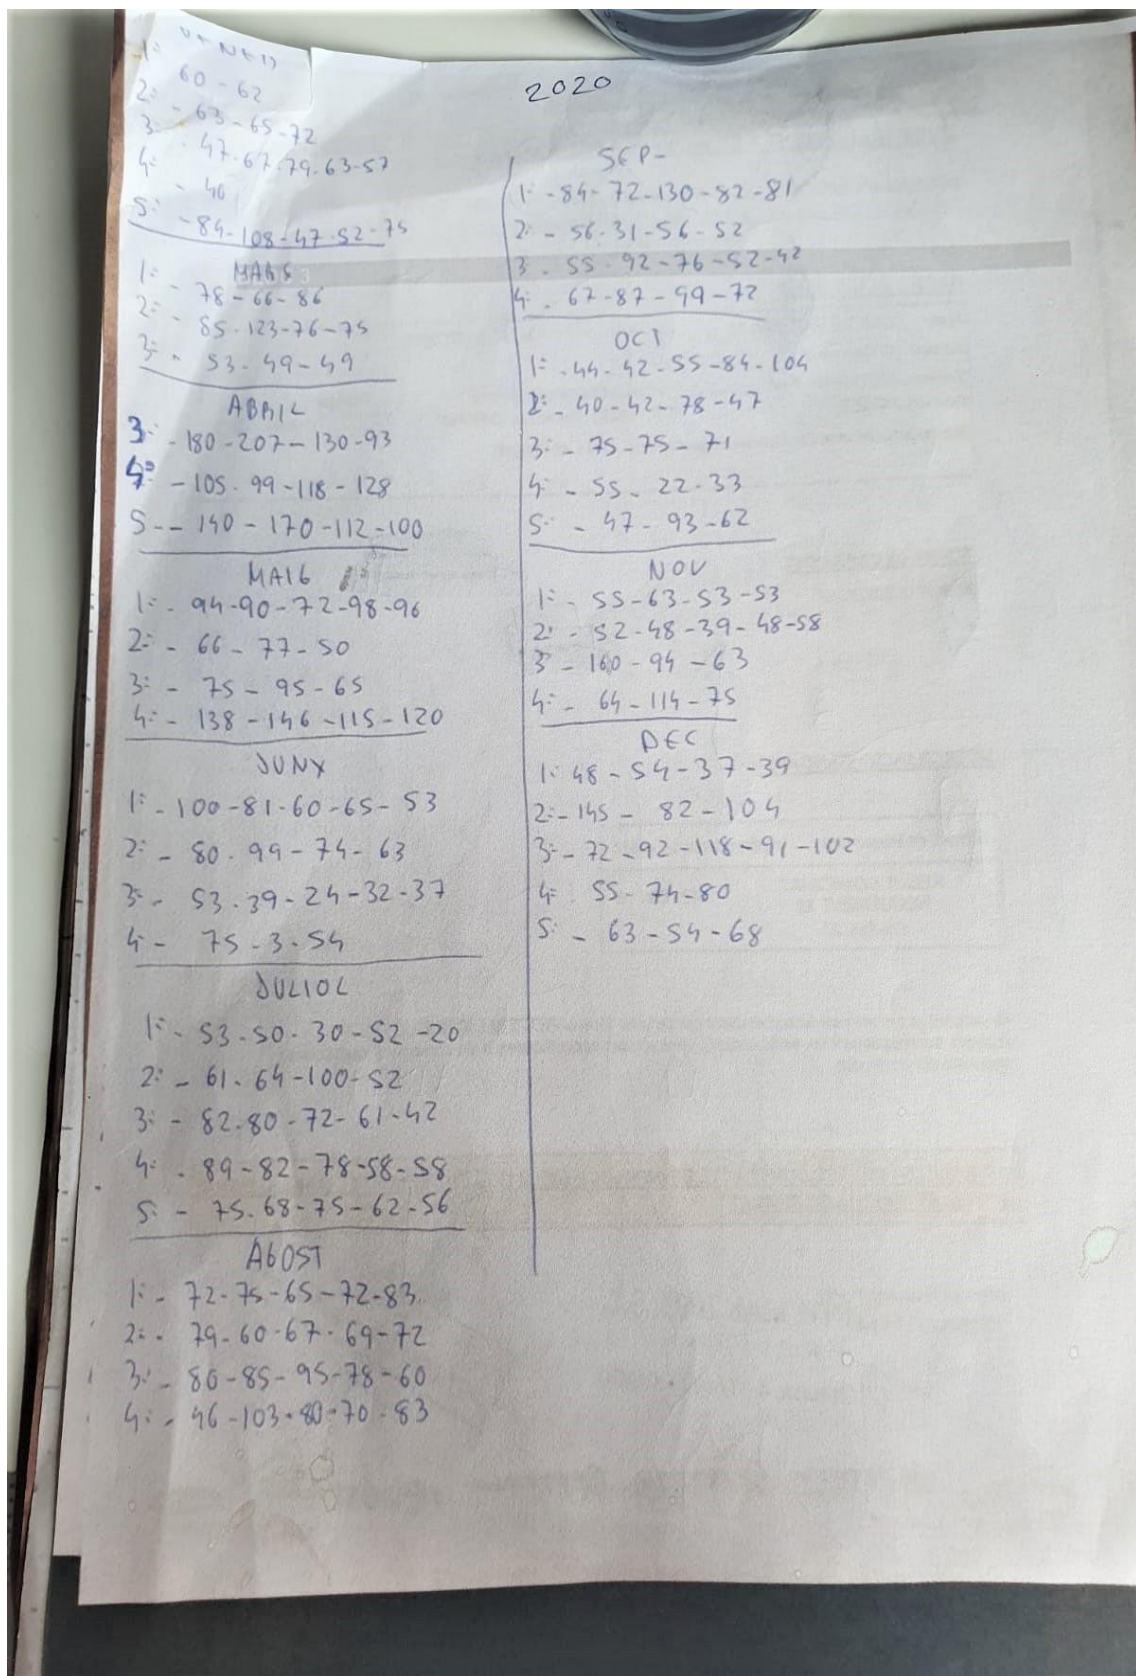 2020
1:
60-62
2:
- 63-65-72
3:
- 47-67-79-63-57
4:
- 40
5:
- 84-108-47-52-75
MARS
1: - 78-66-86
2: - 85-123-76-75
3: - 53-49-49
ABRIL
3: - 180-207-130-93
4: - 105-99-118-128
5-- 140-170-112-100
MAIG
1: - 94-90-72-98-96
2: - 66-77-50
3: - 75-95-65
4: - 138-146-115-120
JUNY
1: - 100-81-60-65-53
2: - 80-99-74-63
3: - 53-39-24-32-37
4: - 75-3-54
JULIOL
1: - 53-50-30-52-20
2: - 61-64-100-52
3: - 82-80-72-61-42
4: - 89-82-78-58-58
5: - 75-68-75-62-56
AGOST
1: - 72-75-65-72-83
2: - 79-60-67-69-72
3: - 80-85-95-78-60
4: - 46-103-80-70-83
SEP-
1: -84-72-130-82-81
2: - 56-31-56-52
3 - 55-92-76-52-42
4: - 67-87-99-72
OCT
1: -44-42-55-84-104
2: - 40-42-78-47
3: - 75-75-71
4: - 55-22-33
5: - 47-93-62
NOV
1: - 55-63-53-53
2: - 52-48-39-48-58
3: - 160-94-63
4: - 64-114-75
DEC
1: 48-54-37-39
2: - 145-82-104
3: - 72-92-118-91-102
4: 55-74-80
5: - 63-54-68